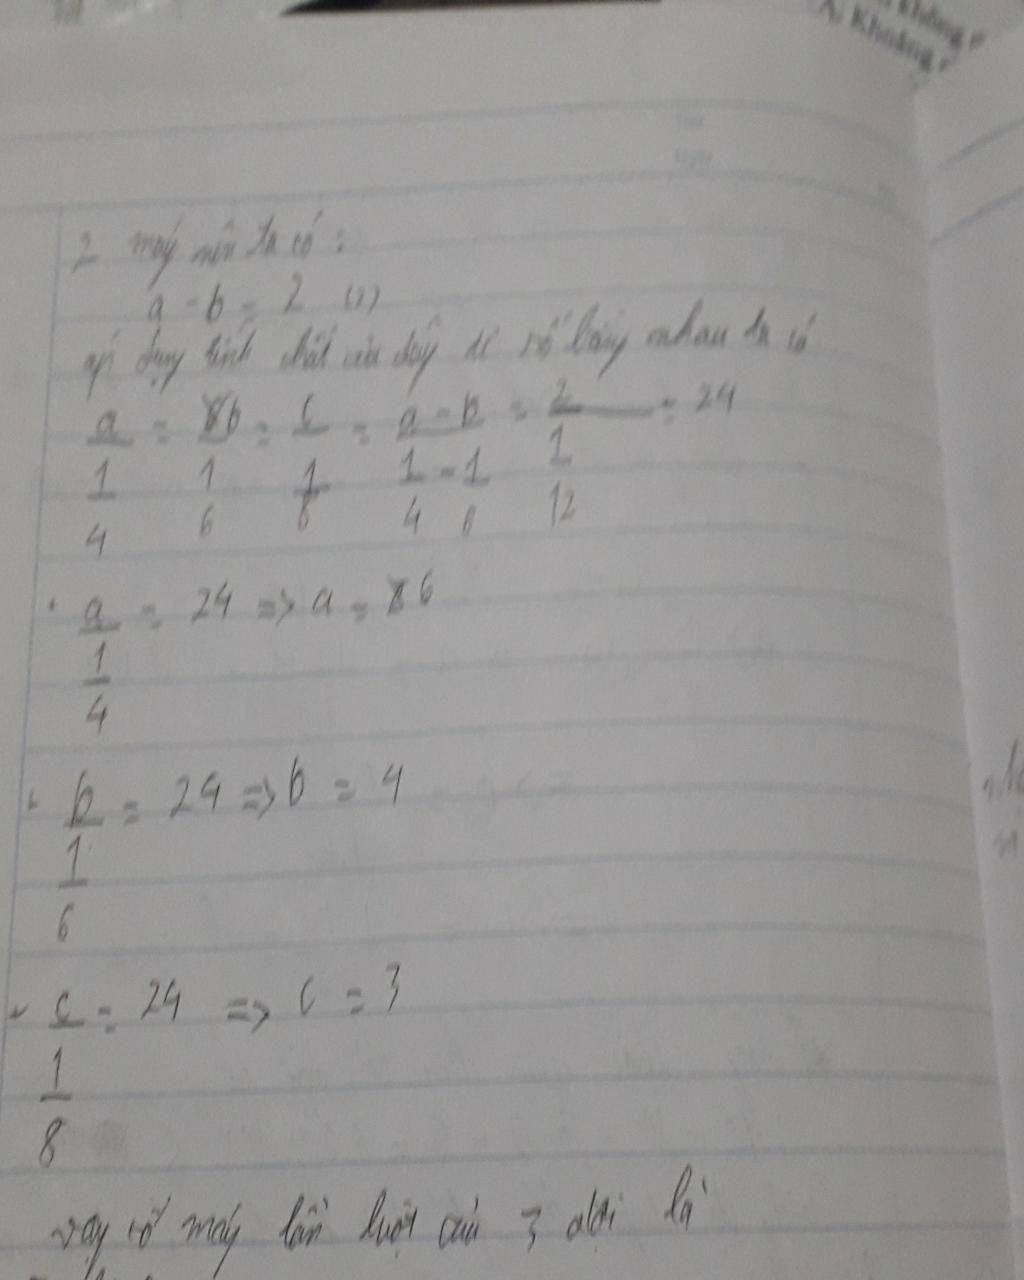 Khoáng
A. Khoáng
2 máy nên ta có:
a - b = 2 (1)
áp dụng tính chất của dãy tỉ số bằng nhau ta có
a/(1/4) = b/(1/6) = c/(1/8) = (a - b)/(1/4 - 1/6) = 2/(1/12) = 24
a/(1/4) = 24 => a = 6
b/(1/6) = 24 => b = 4
c/(1/8) = 24 => c = 3
vậy số máy lần lượt của 3 đội là